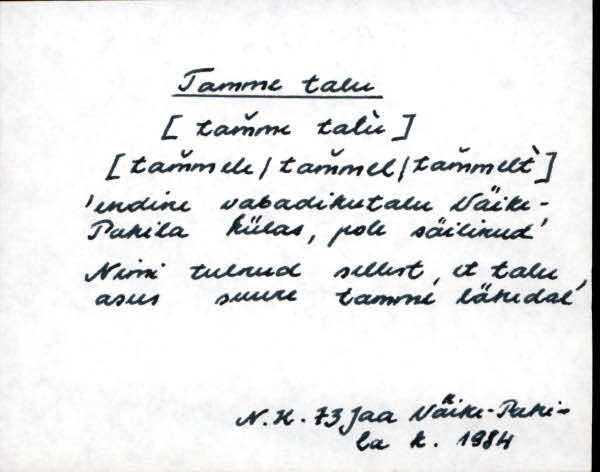 Tamme talu
[ tam̆me talù ]
[ tam̆mele / tam̆mel / tam̆melt̀ ]
'endine vabadikutalu Väike-
Pahila külas, pole säilinud'
Nimi tulnud sellest, et talu
asus suure tamme lähedal'
N.H. 73 Jaa Väike-Pahi-
la k. 1984